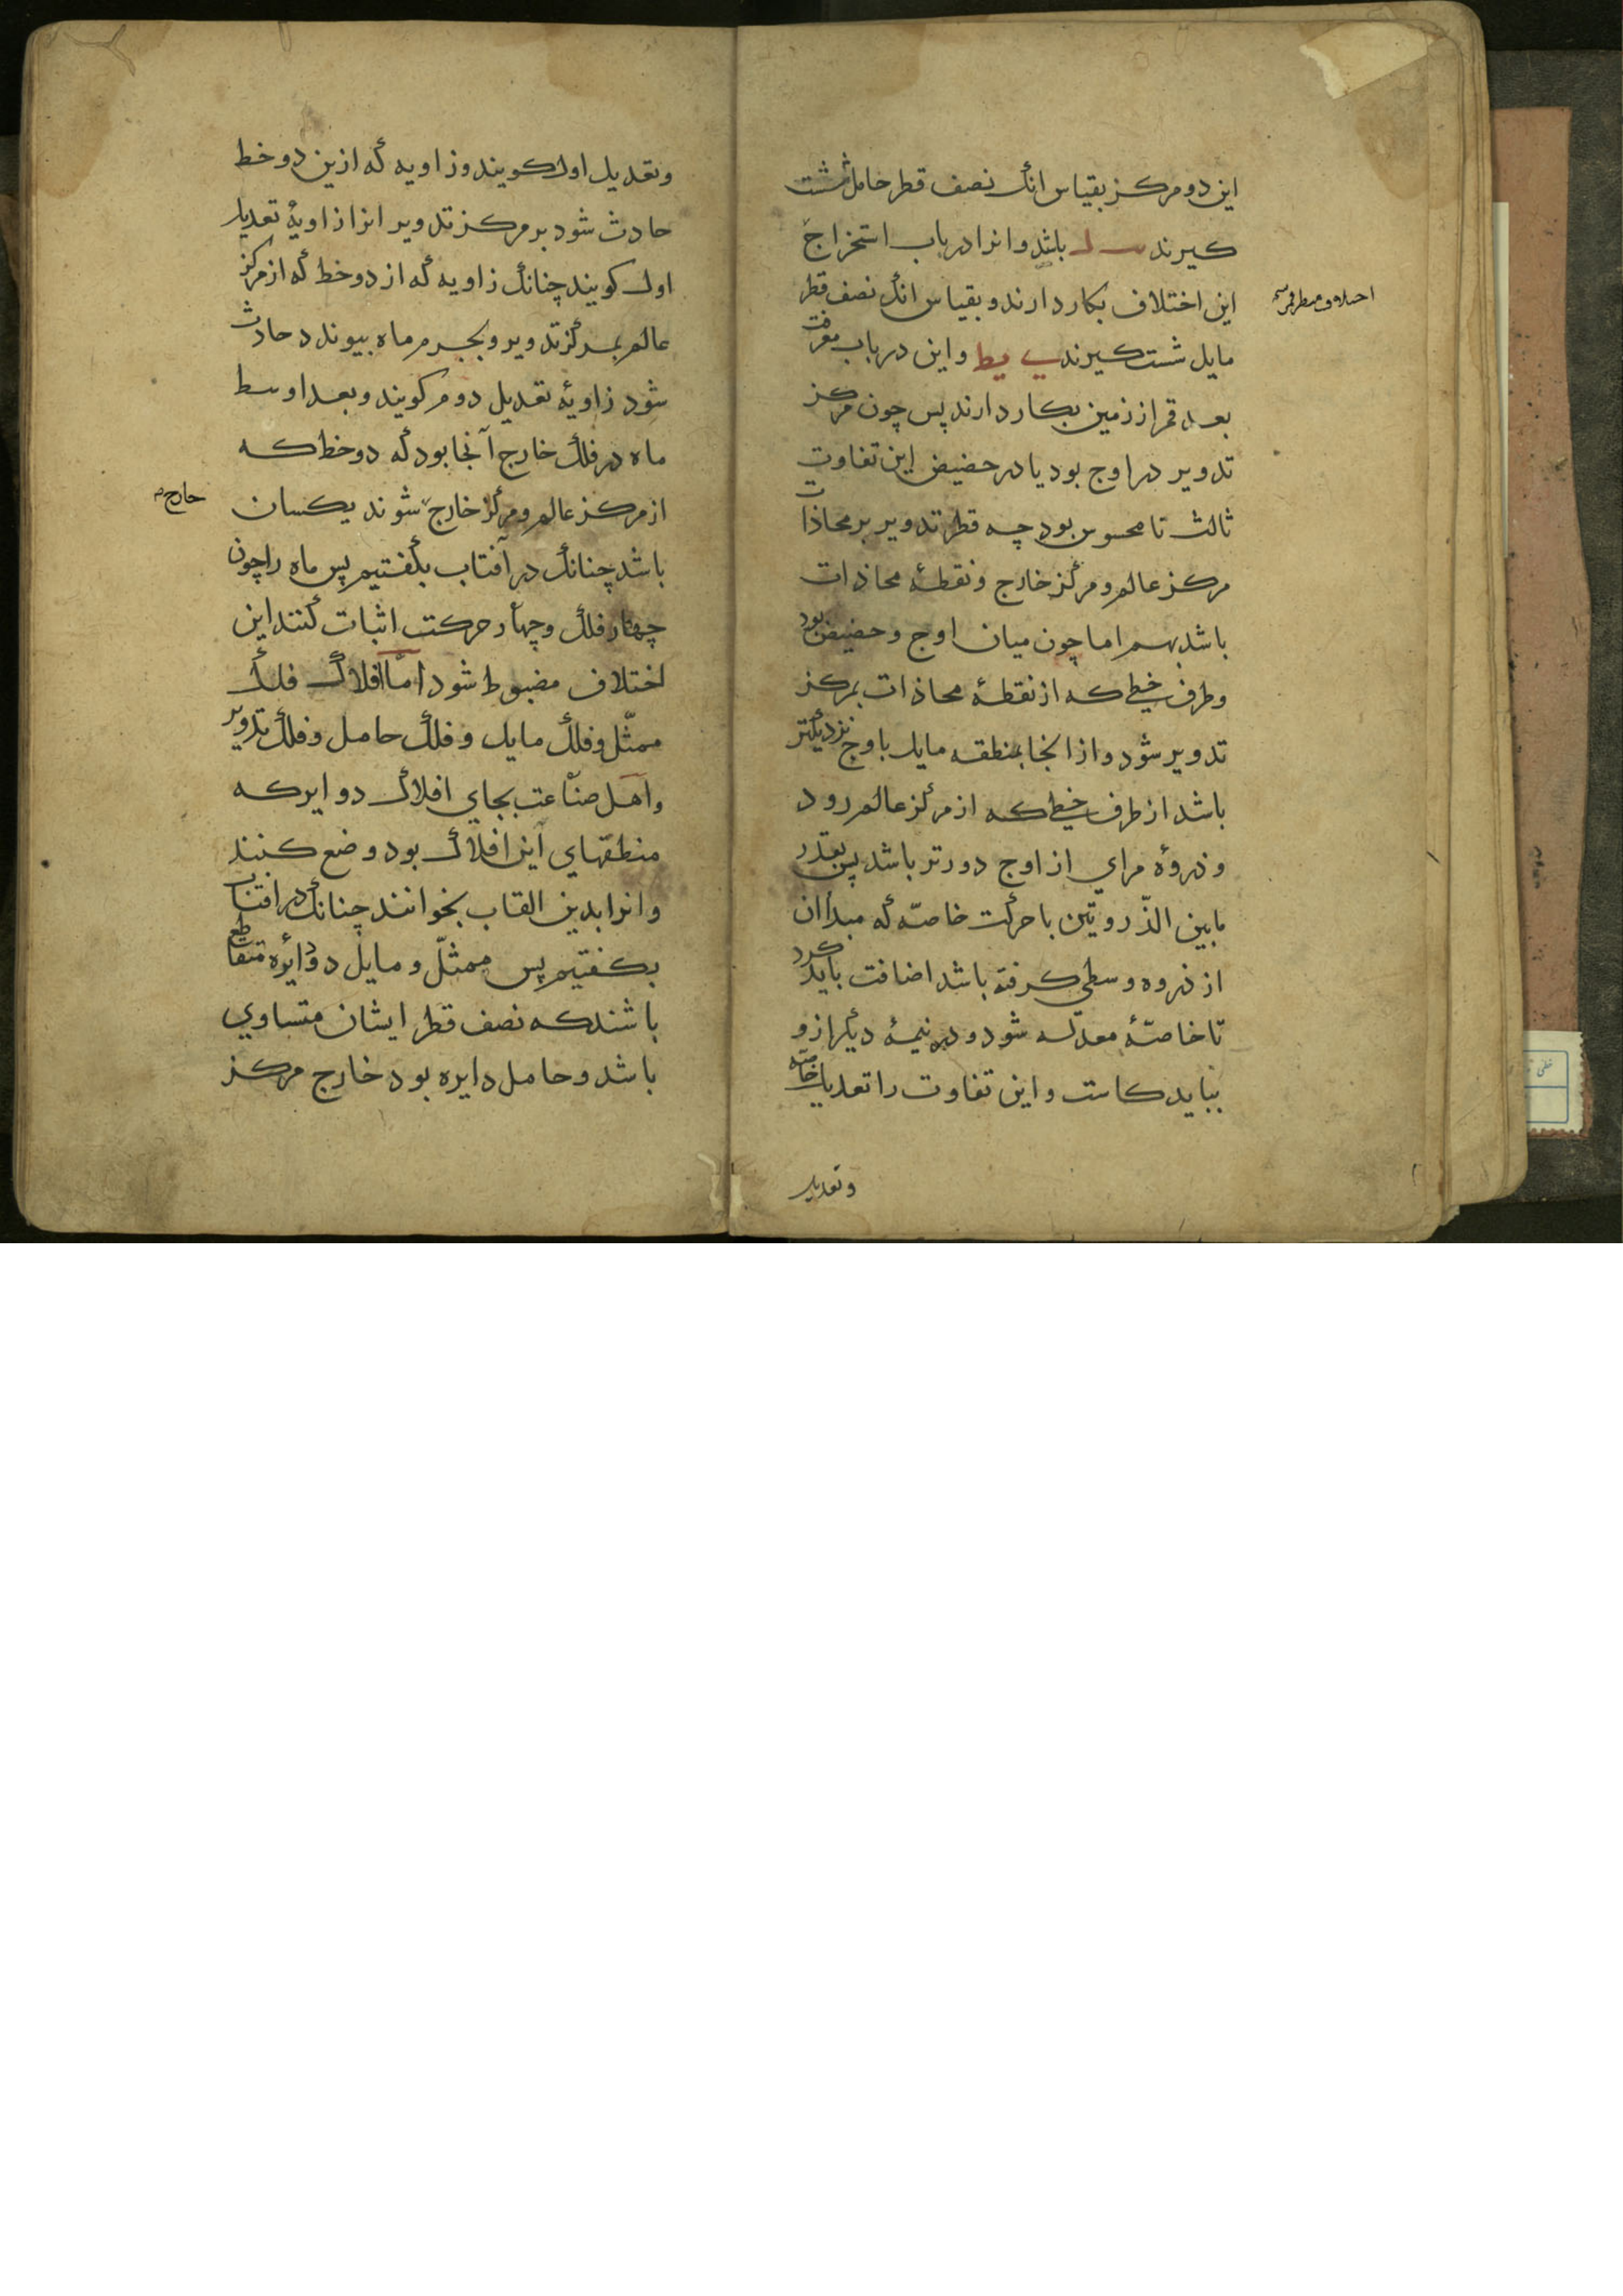 این دو مرکز بقیاس انک نصف قطر حامل شست
کیرند باشد وانرا در باب استخراج
این اختلاف بکار دارند و بقیاس انک نصف قطر
مایل شست کیرند یب یط و این در باب معرفت
بعد قمر از زمین بکار دارند پس چون مرکز
تدویر در اوج بود یا در حضیض این تفاوت
ثالث نا محسوس بود چه قطر تدویر بر محاذات
مرکز عالم و مرکز خارج و نقطهٔ محاذات
باشد بهم اما چون میان اوج و حضیض بود
و طرف خطی که از نقطهٔ محاذات بمرکز
تدویر شود و از انجا بمنطقه مایل باوج نزدیکتر
باشد از طرف خطی که از مرکز عالم رود
و ذروهٔ مرای از اوج دورتر باشد پس بقدر
مابین الذّروتین با حرکت خاصّه که مبدأ ان
از ذروه وسطی کرفته باشد اضافت باید کرد
تا خاصّهٔ معدّله شود و در نیمهٔ دیگر ازو
بباید کاست و این تفاوت را تعدیل خاصّه
و تعدیل
و تعدیل اول کویند و زاویه که ازین دو خط
حادث شود بر مرکز تدویر انرا زاویهٔ تعدیل
اول کویند چنانک زاویه که از دو خط که از مرکز
عالم بمرکز تدویر و بجرم ماه بیوندد حادث
شود زاویهٔ تعدیل دوم کویند و بعد اوسط
ماه در فلک خارج آنجا بود که دو خط که
از مرکز عالم و مرکز خارج شوند یکسان
خارج
باشد چنانک در آفتاب بگفتیم پس ماه را چون
چهار فلک و چهار حرکت اثبات کنند این
اختلاف مضبوط شود امّا افلاک فلک
ممثّل و فلک مایل و فلک حامل و فلک تدویر
و اهل صناعت بجای افلاک دوایر که
منطقهای این افلاک بود وضع کنند
و انرا بدین القاب بخوانند چنانک در افتاب
بکفتیم پس ممثّل و مایل دو دایره متقاطع
باشند که نصف قطر ایشان متساوی
باشد و حامل دایره بود خارج مرکز